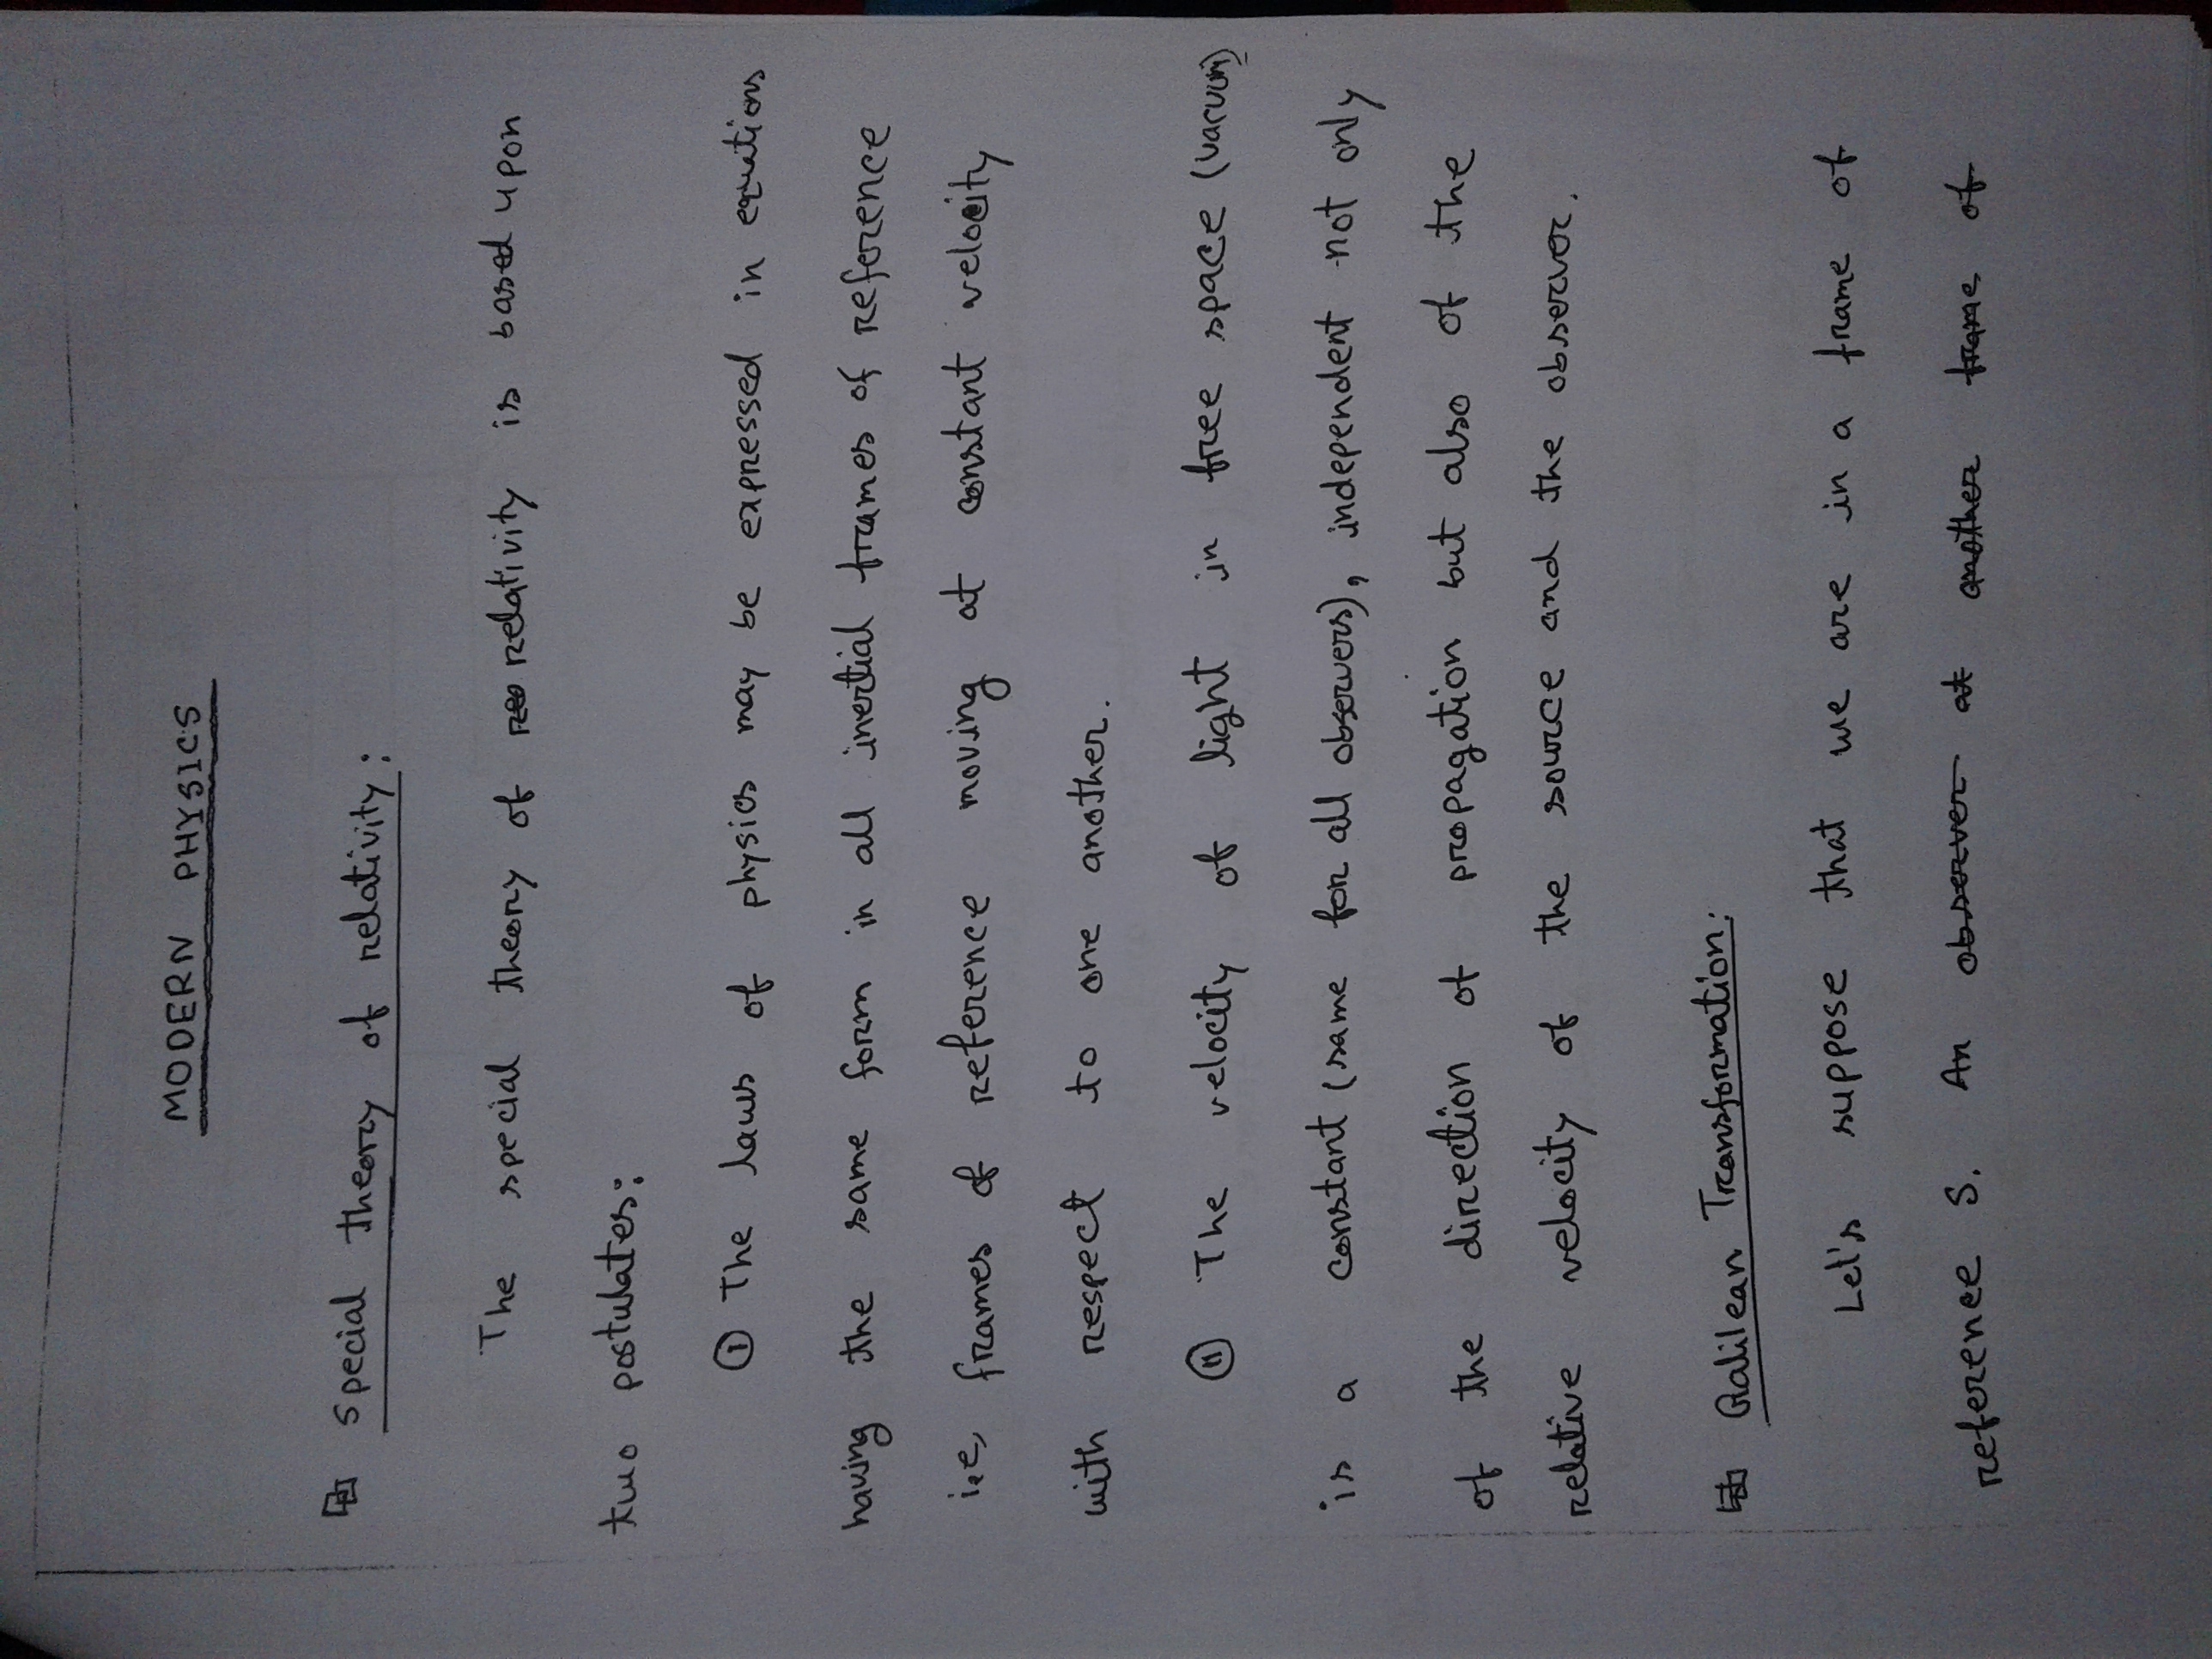 MODERN PHYSICS
Special theory of relativity:
The special theory of relativity is based upon
two postulates:
① The laws of physics may be expressed in equations
having the same form in all inertial frames of reference
i.e, frames of reference moving at constant velocity
with respect to one another.
ⓘⓘ The velocity of light in free space (vacuum)
is a constant (same for all observers), independent not only
of the direction of propagation but also of the
relative velocity of the source and the observer.
Galilean Transformation:
Let's suppose that we are in a frame of
reference S. An observer at another frame of